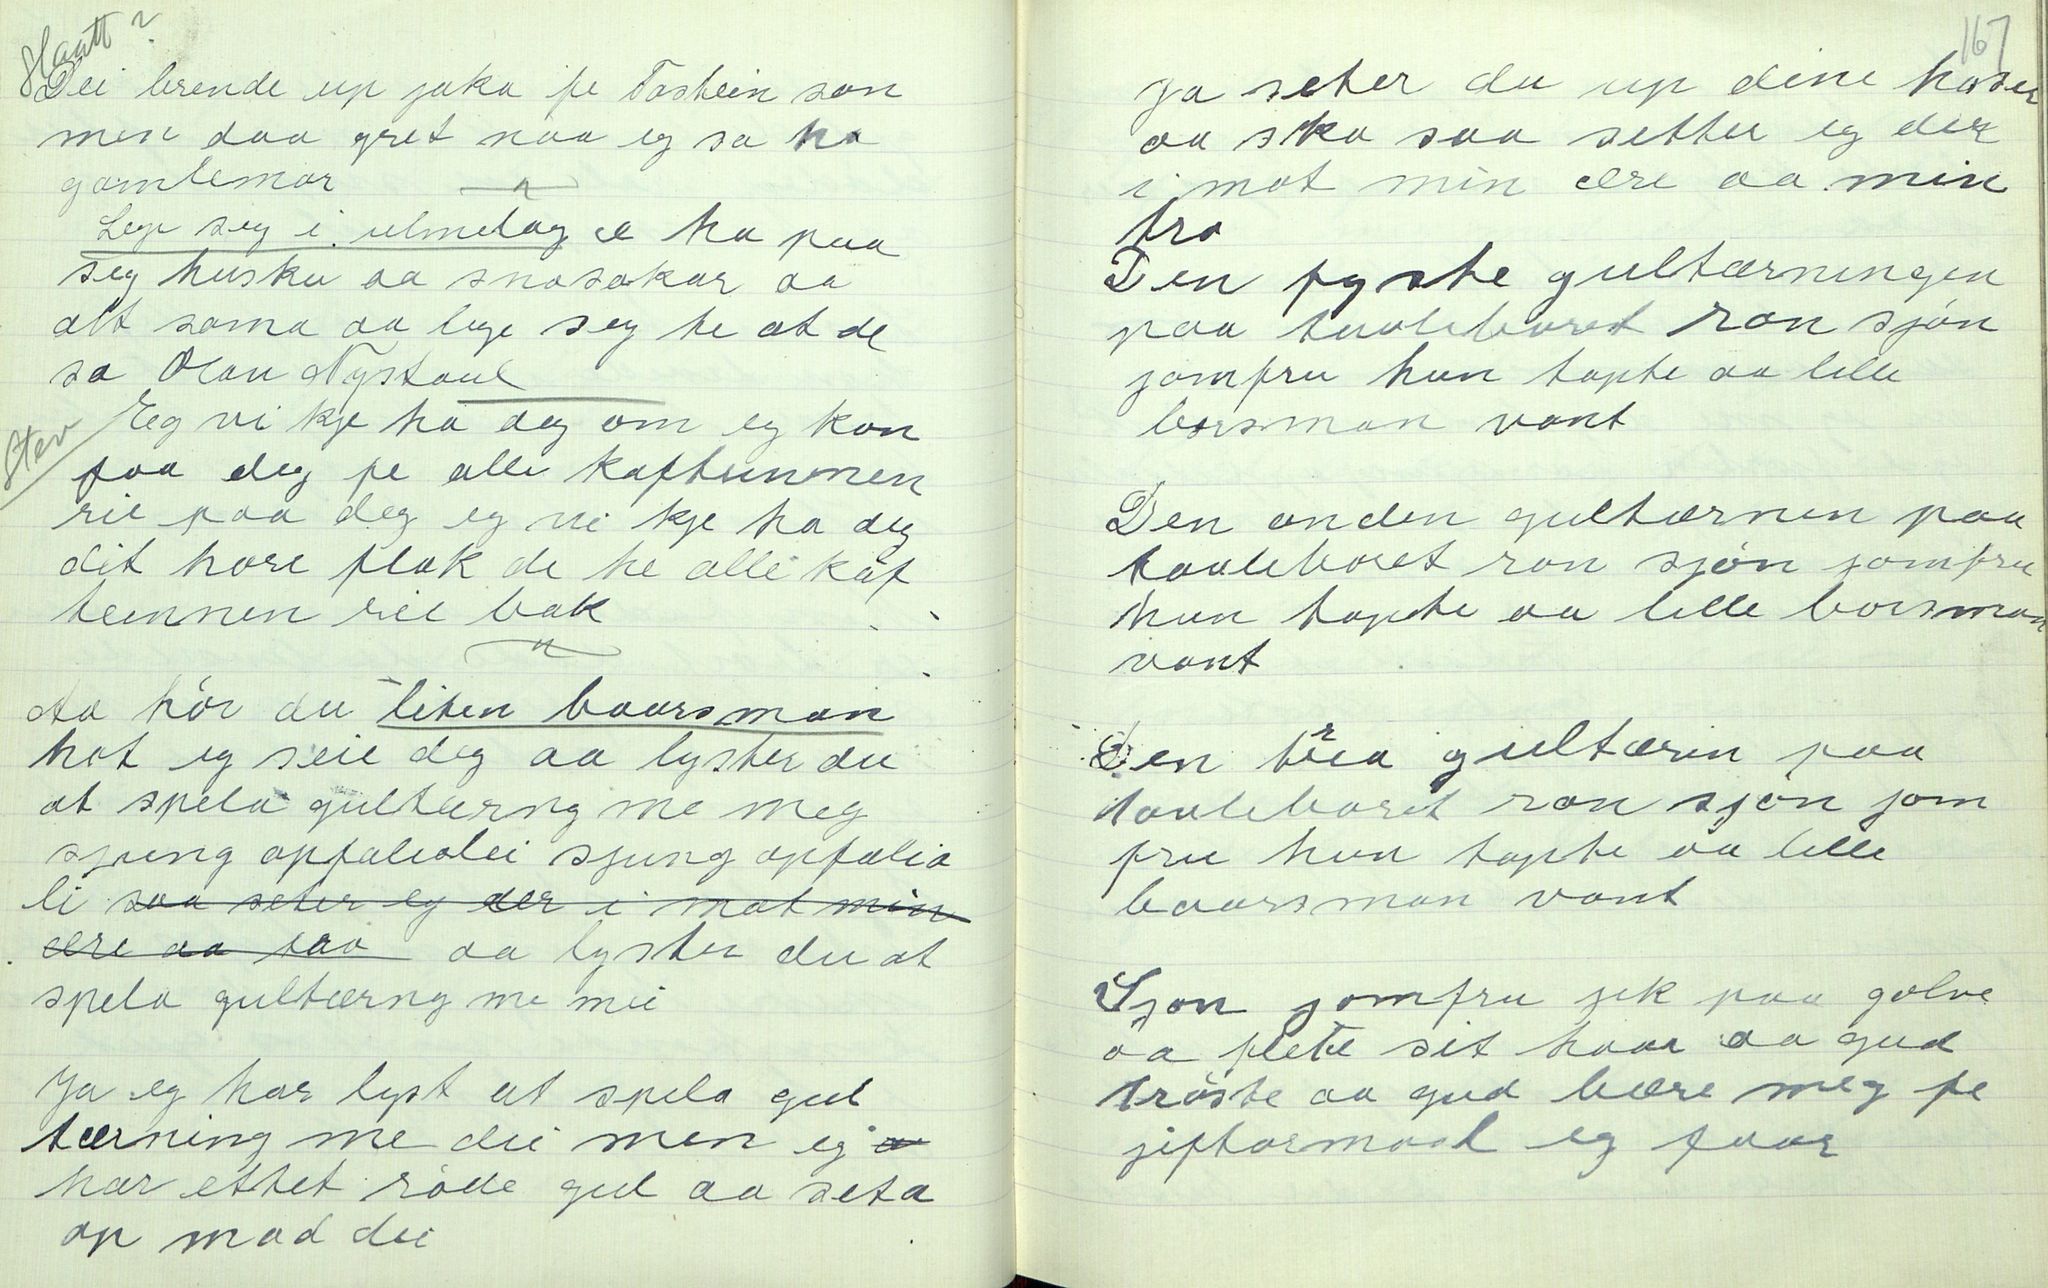 Haatt?
Dei brende up joka fe Tostein son
men daa gret naa eg sa ho
gomlemor
Lege seg i ulmelog e ha paa
seg husku aa snosokar aa
alt soma aa lege seg te at de
sa Olav Nystaul
Stev
Eg vi kje ha deg om eg kan
faa deg fe alle kaftunnen
rie paa deg eg vi kje ha deg
dit hore flak de he alle kaf
teinnen rie bak
Aa hör du liten baarsman
hot eg seie deg aa lyster du
at spela gultærng me meg
sjung opfaliolei sjung opfalio
li saa seter eg der i mot min
ære aa tro aa lyster du at
spela gultærng me mei
Ja eg har lyst at spela gul
tærning me dei men eg
har ettet röde gul aa seta
op mod dei
167
Ja seter du up dine hoser
aa sko saa setter eg der
i mot min ære aa min
tro
Den fyste gultærningen
paa tavleboret ron sjön
jomfru hun tapte aa lille
borsman vont
Den anden gultærnen paa
taaleboret ron sjön jomfru
hun tapte aa lille borsman
vont
Den trea gultærin paa
taaleboret ron sjon jom
fru hun tapte aa lille
baarsman vont
Sjon jomfru jek paa golve
aa flete sit haar aa gud
tröste aa gud bære meg fe
jiftormaal eg faar